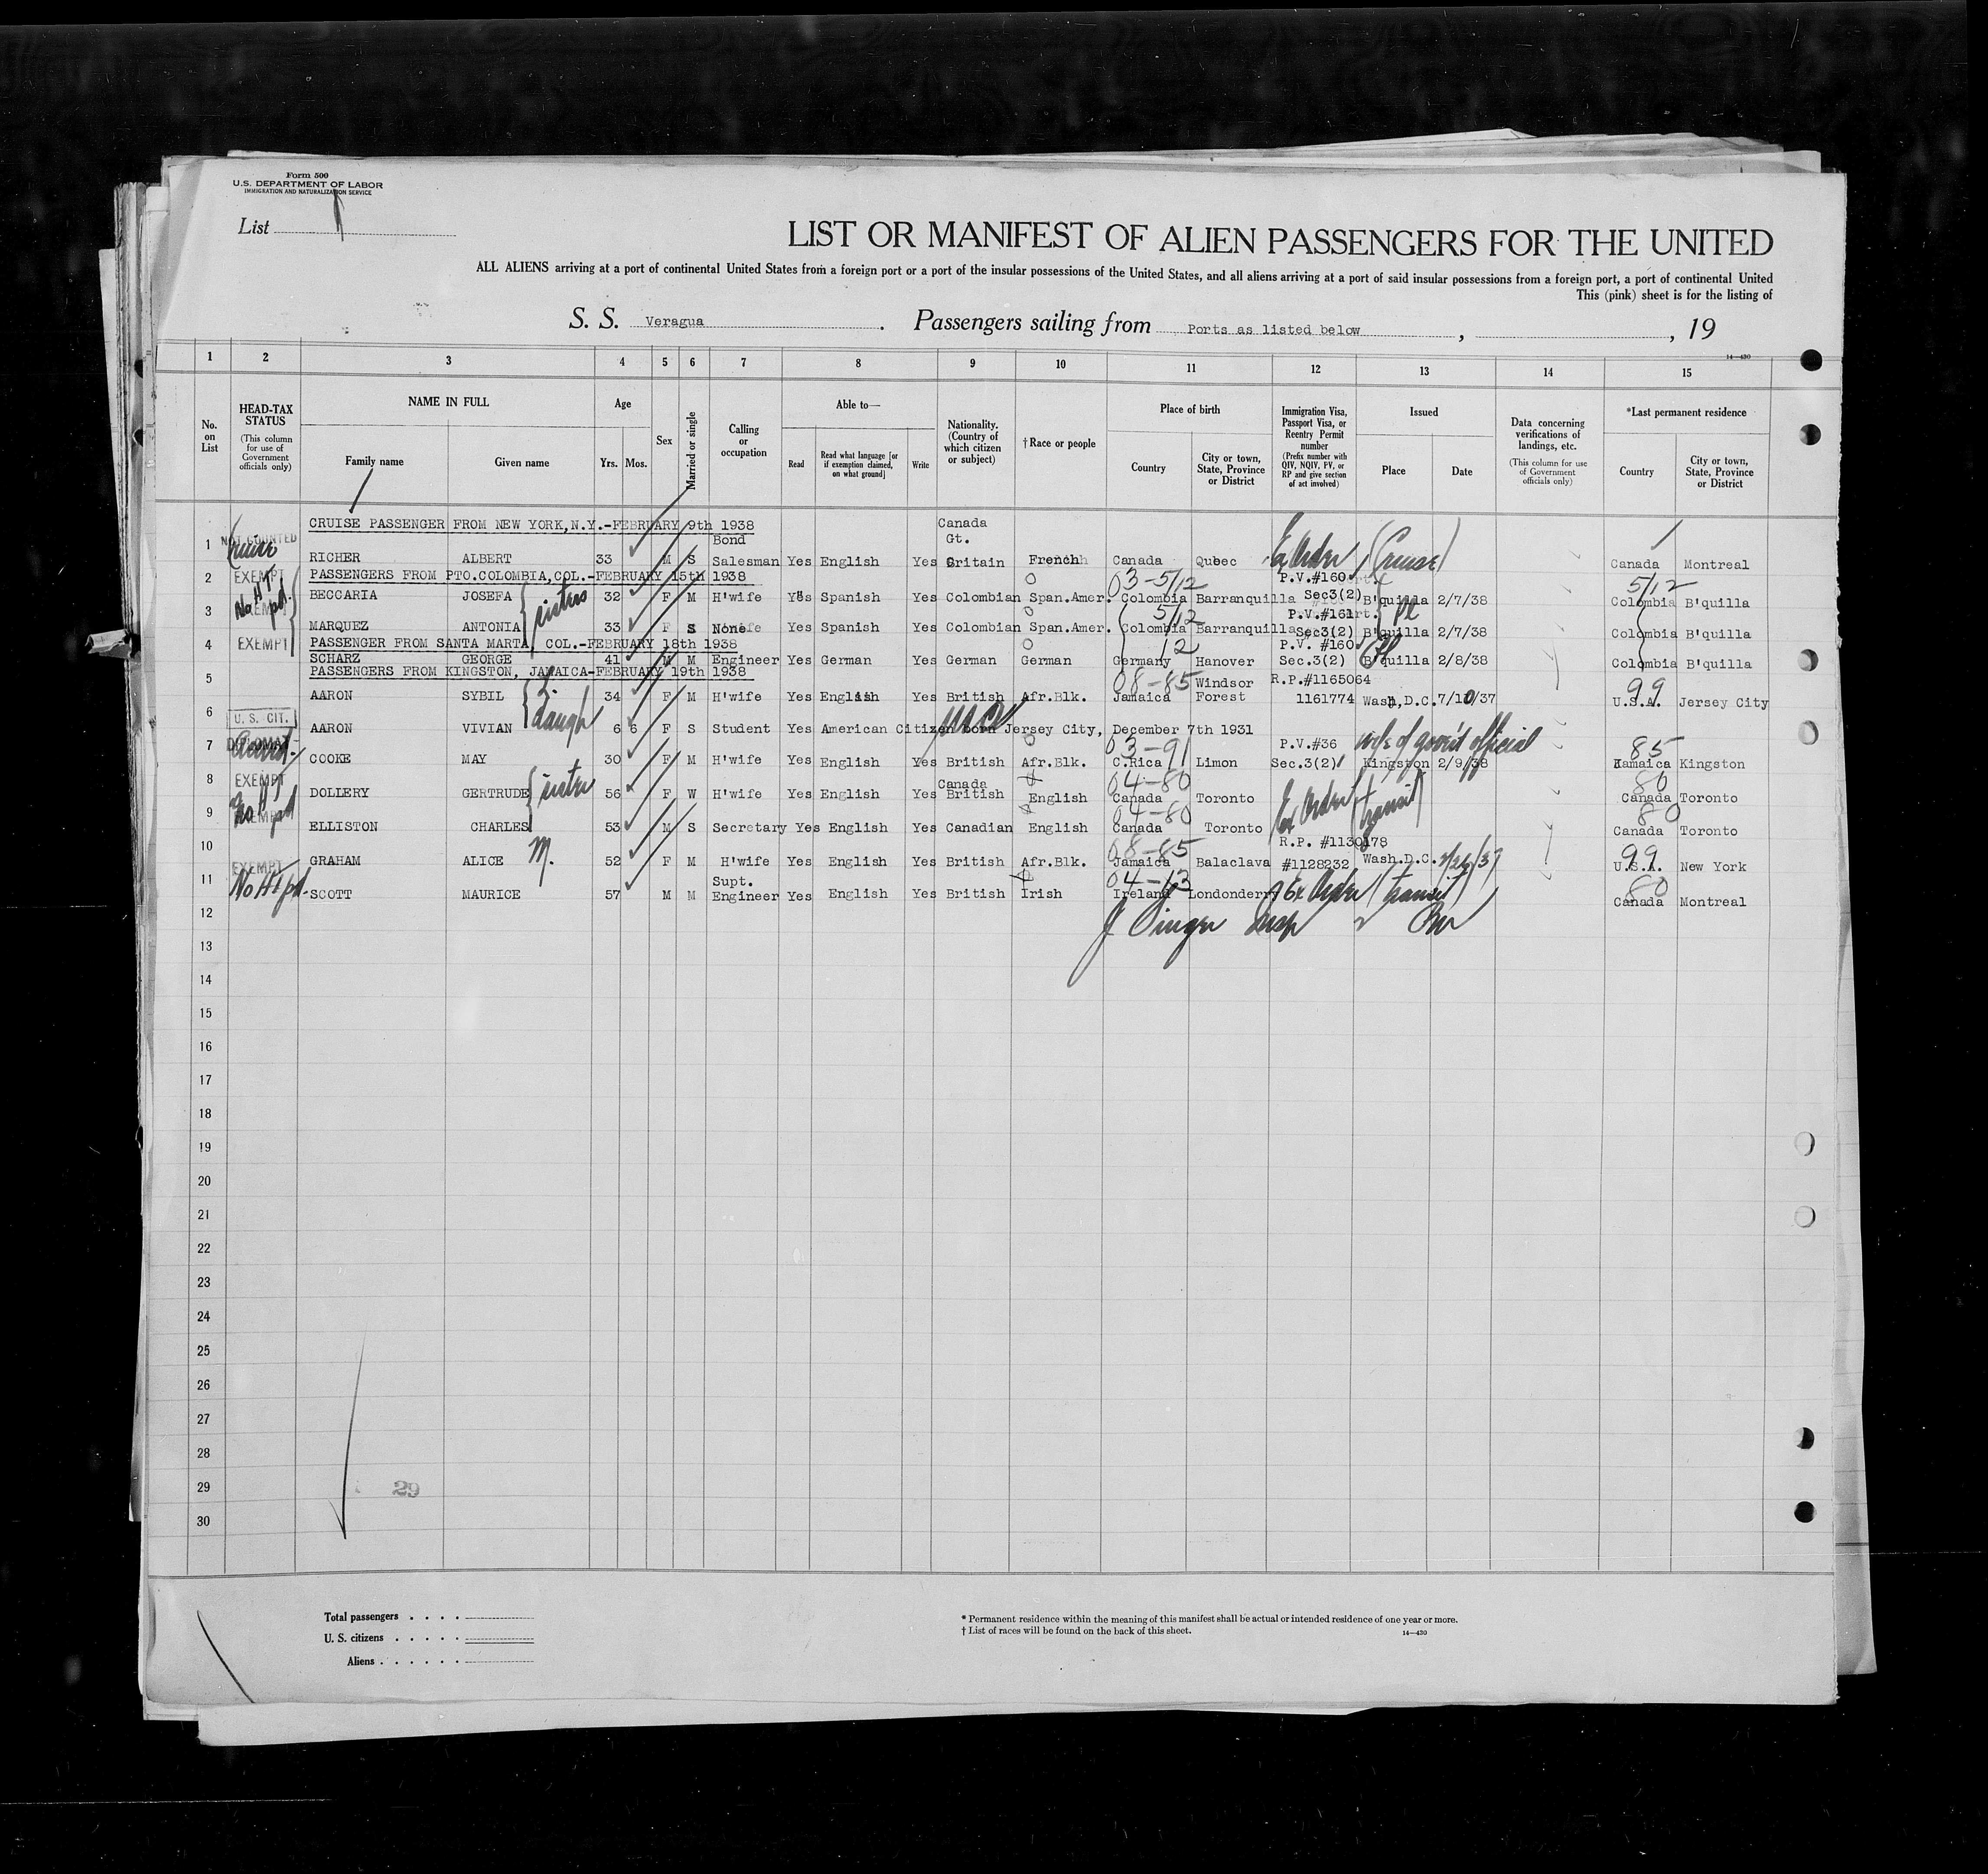 Form 500
U.S. DEPARTMENT OF LABOR
IMMIGRATION AND NATURALIZATION SERVICE
List
LIST OR MANIFEST OF ALIEN PASSENGERS FOR THE UNITED
ALL ALIENS arriving at a port of continental United States from a foreign port or a port of the insular possessions of the United States, and all aliens arriving at a port of said insular possessions from a foreign port, a port of continental United
This (pink) sheet is for the listing of
S. S. Veragua . Passengers sailing from Ports as listed below , , 19
14—430
1 2 3 4 5 6 7 8 9 10 11 12 13 14 15
No. on List
HEAD-TAX STATUS (This column for use of Government officials only)
NAME IN FULL
Family name Given name
Age
Yrs. Mos.
Sex
Married or single
Calling or occupation
Able to—
Read Read what language [or if exemption claimed, on what ground] Write
Nationality. (Country of which citizen or subject)
†Race or people
Place of birth
Country City or town, State, Province or District
Immigration Visa, Passport Visa, or Reentry Permit number (Prefix number with QIV, NQIV, PV, or RP and give section of act involved)
Issued
Place Date
Data concerning verifications of landings, etc. (This column for use of Government officials only)
*Last permanent residence
Country City or town, State, Province or District
CRUISE PASSENGER FROM NEW YORK, N.Y.-FEBRUARY 9th 1938
NOT COUNTED Bond Canada Gt. Ex Order (Cruise)
1 RICHER ALBERT 33 M S Salesman Yes English Yes Britain French Canada Qubec Canada Montreal
2 EXEMPT PASSENGERS FROM PTO.COLOMBIA,COL.-FEBRUARY 15th 1938 03-5/12 P.V.#160 5/12
No HT pd. BECCARIA JOSEFA sisters 32 F M H'wife Yes Spanish Yes Colombian Span.Amer. Colombia Barranquilla Sec3(2) B'quilla 2/7/38 Colombia B'quilla
3 5/12 P.V.#161
MARQUEZ ANTONIA 33 F S None Yes Spanish Yes Colombian Span.Amer. Colombia Barranquilla Sec3(2) B'quilla 2/7/38 Colombia B'quilla
4 EXEMPT PASSENGER FROM SANTA MARTA, COL.-FEBRUARY 18th 1938 12 P.V. #160
SCHARZ GEORGE 41 M M Engineer Yes German Yes German German Germany Hanover Sec.3(2) B'quilla 2/8/38 Colombia B'quilla
5 PASSENGERS FROM KINGSTON, JAMAICA-FEBRUARY 19th 1938
08-85 Windsor R.P.#1165064 99
AARON SYBIL 34 F M H'wife Yes English Yes British Afr.Blk. Jamaica Forest 1161774 Wash,D.C. 7/10/37 U.S.A. Jersey City
6 U. S. CIT. daugh
AARON VIVIAN 6 6 F S Student Yes American Citizen born Jersey City, December 7th 1931
7 03-91 P.V.#36 wife of gov't official 85
COOKE MAY 30 F M H'wife Yes English Yes British Afr.Blk. C.Rica Limon Sec.3(2) Kingston 2/9/38 Jamaica Kingston
8 EXEMPT Canada 04-80 80
DOLLERY GERTRUDE sister 56 F W H'wife Yes English Yes British English Canada Toronto Ex Order (transit) Canada Toronto
9 04-80 80
ELLISTON CHARLES 53 M S Secretary Yes English Yes Canadian English Canada Toronto Canada Toronto
10 M. 08-85 R.P. #1130178 99
EXEMPT GRAHAM ALICE 52 F M H'wife Yes English Yes British Afr.Blk. Jamaica Balaclava #1128232 Wash.D.C. U.S.A. New York
11 No HT pd. Supt. 04-13 80
SCOTT MAURICE 57 M M Engineer Yes English Yes British Irish Ireland Londonderry Ex Order (transit) Canada Montreal
12
13
14
15
16
17
18
19
20
21
22
23
24
25
26
27
28
29
29
30
Total passengers
U. S. citizens
Aliens
* Permanent residence within the meaning of this manifest shall be actual or intended residence of one year or more.
† List of races will be found on the back of this sheet.
14—430